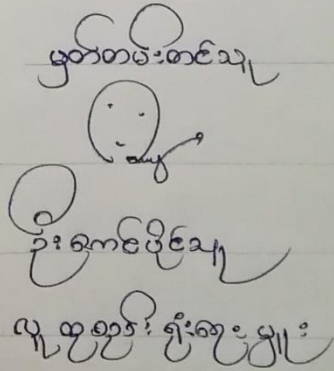 မှတ်တမ်းတင်သူ
ဦးကောင်ပိုင်သူ
လူထုစည်းရုံးရေးမှူး